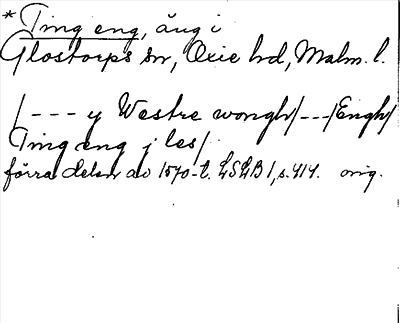 * Ting eng, äng i
Glostorps sn, Oxie hd, Malm. l.
/--- y Westre wongh/---/Engh/
Ting eng j les/
förra delen av 1570-t. LSLB 1, s. 414. orig.